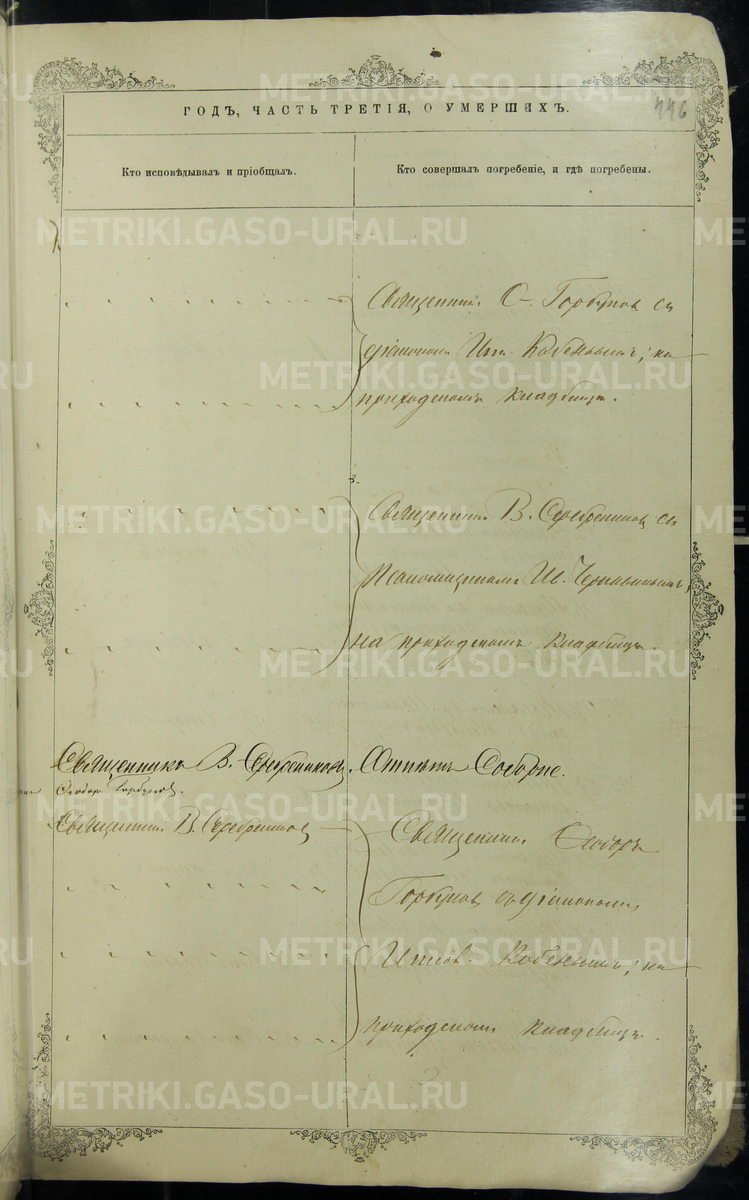 ГОДЪ, ЧАСТЬ ТРЕТІЯ, О УМЕРШИХЪ.
446
Кто исповѣдывалъ и пріобщалъ.
Кто совершалъ погребеніе, и гдѣ погребены.
METRIKI.GASO-URAL.RU
Священникъ Ѳ. Горбуновъ съ
діакономъ Кобеньымъ; на
приходскомъ кладбищѣ.
Священникъ В. Серебренниковъ съ
Псаломщикомъ И. Чернавинымъ,
на приходскомъ кладбищѣ.
Священникъ В. Серебренниковъ.
Отпѣтъ Соборне.
Ѳеодоръ Горбуновъ.
Священникъ В. Серебренниковъ
Священникъ Ѳеодоръ
Горбуновъ съ діакономъ
Кобеньымъ; на
приходскомъ кладбищѣ.